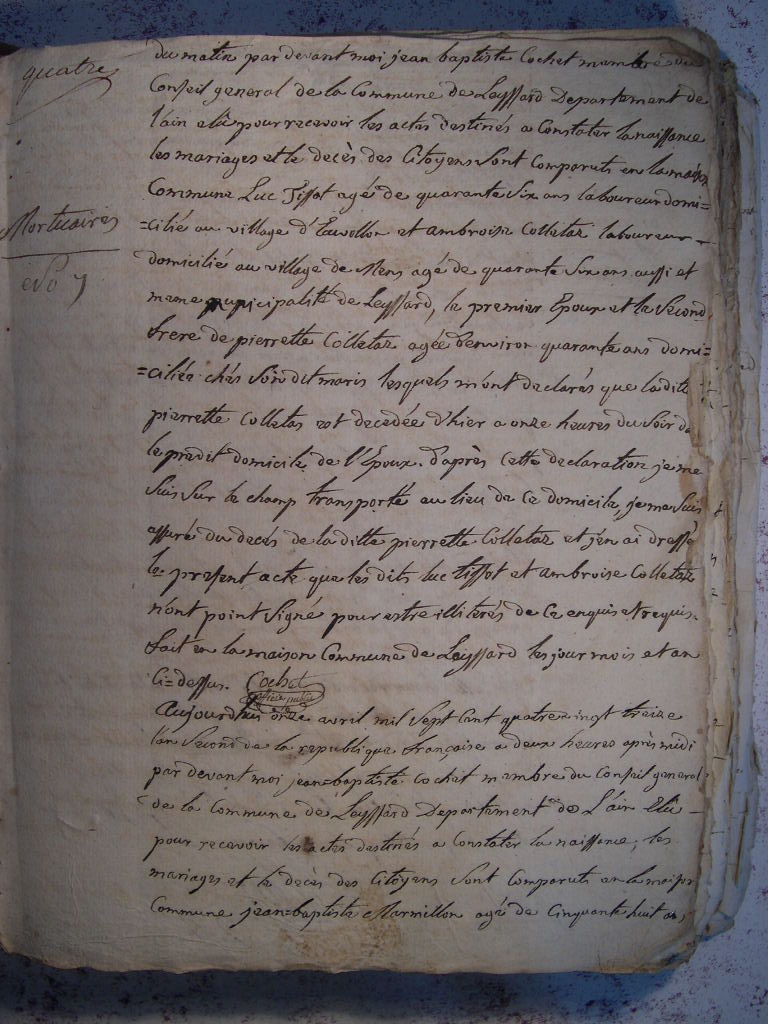 quatre
Mortuaires
No 7
du matin par devant moi jean baptiste Cochet mambre du
Conseil general de la Commune de Leyssard Departement de
l'ain elû pour recevoir les actes destinés a Constater la naissance
les mariages et le decès des Citoyens Sont Comparuts en la maison
Commune Luc Tissot agé de quarante Six ans laboureur domi=
=cilié au village d' et ambroise Colletaz laboureur
domicilié au village de Mens agé de quarante Six ans aussi et
mame municipalité de Leyssard, le premier Epoux et le Second
frere de pierrette Colletaz agée d'environ quarante ans domi=
=ciliée chés Son dit maris lesquels m'ont declarés que la ditte
pierrette Colletas est decedée d'hier a onze heures du Soir da
le predit domicile de l'Epoux. d'après Cette declaration je me
Suis Sur le champ transporté au lieu de Ce domicile, je me Suis
assuré du decès de la ditte pierrette Colletaz et j'en ai dressé
le present acte que les dits luc tissot et ambroise Colletaz
n'ont point Signé pour estre illiterés de Ce enquis et requis.
fait en la maison Commune de Leyssard les jour mois et an
Ci=dessus. Cochet
officier public
aujourd'hui onze avril mil Sept Cent quatre vingt treize
l'an Second de la republique française a deux heures après midi
par devant moi jean=baptiste Cochet mambre du Conseil general
de la Commune de Leyssard Departement de L'ain Elû
pour recevoir les actes destinés a Constater la naissance, les
mariages et le decès des Citoyens Sont Comparuts en la maison
Commune jean=baptiste Marmillon agé de Cinquante huit ans